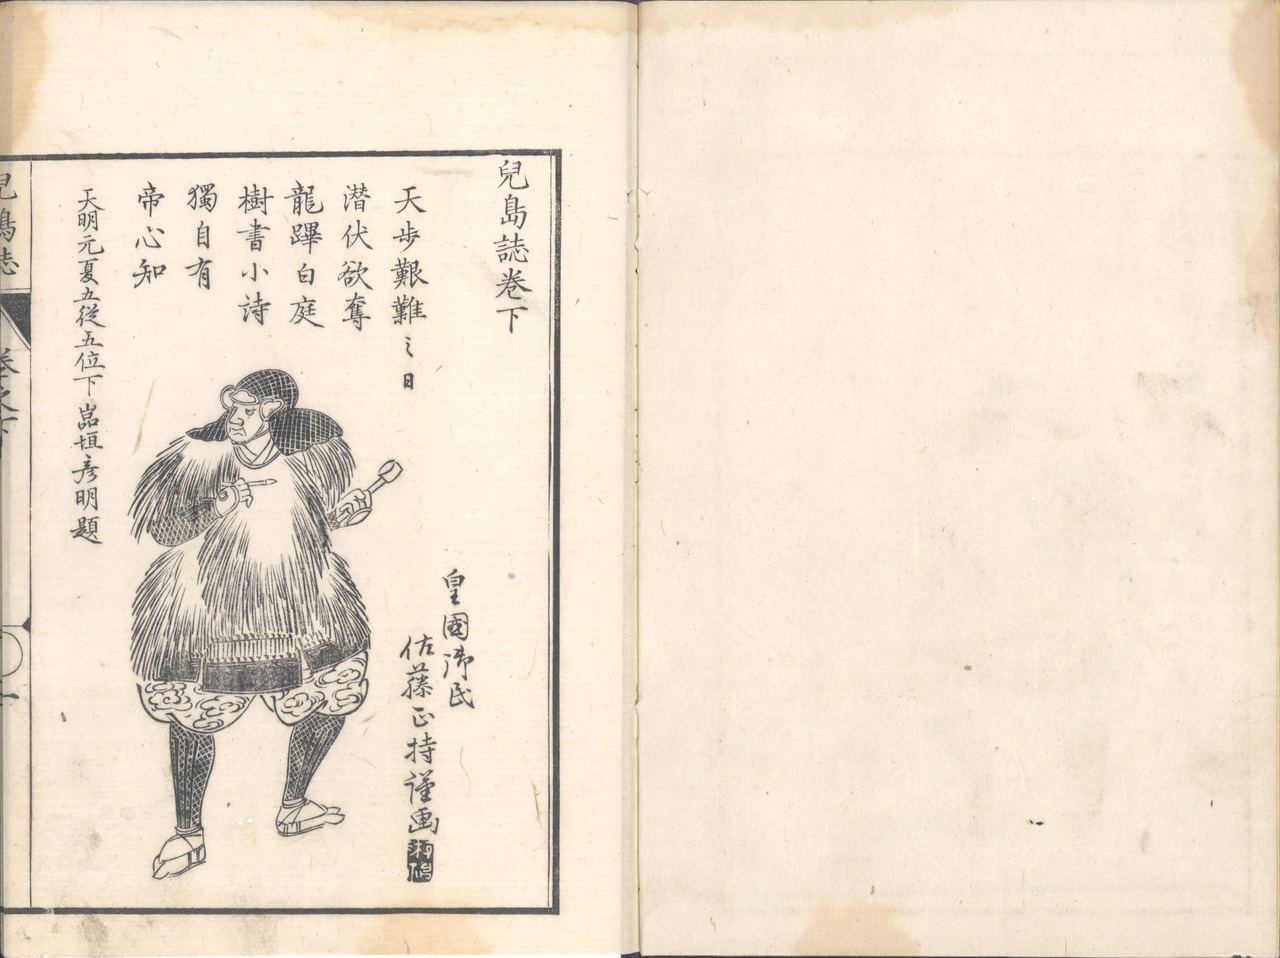 兒島誌卷下
天步艱難之日
潜伏欲奪
龍蹕白庭
樹書小詩
獨自有
帝心知
天明元夏五從五位下嵓垣彥明題
皇國御民
佐藤正持謹画
兒島誌
卷之下
一